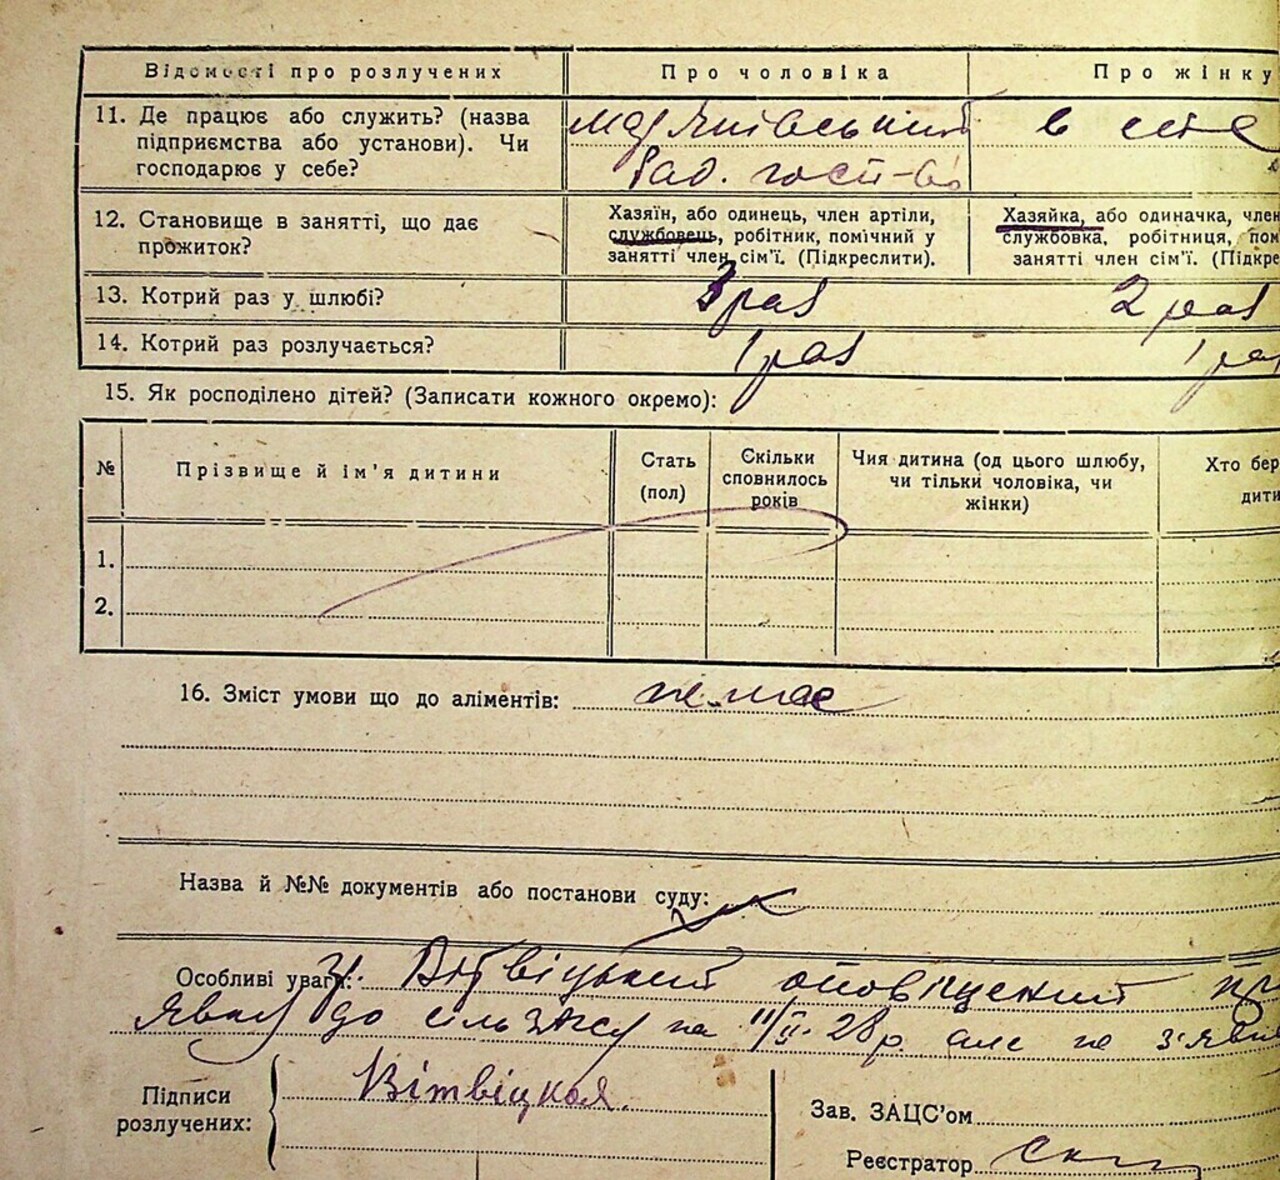 Відомості про розлучених
Про чоловіка
Про жінку
11. Де працює або служить? (назва
підприємства або установи). Чи
господарює у себе?
Мар'янівський
Рад. госп-во
в селе
12. Становище в занятті, що дає
прожиток?
Хазяїн, або одинець, член артіли,
службовець, робітник, помічний у
занятті член сім'ї. (Підкреслити).
Хазяйка, або одиначка, член
службовка, робітниця, пом
занятті член сім'ї. (Підкре
13. Котрий раз у шлюбі?
3 раз
2 раз
14. Котрий раз розлучається?
1 раз
1 раз
15. Як росподілено дітей? (Записати кожного окремо):
№
Прізвище й ім'я дитини
Стать
(пол)
Скільки
сповнилось
років
Чия дитина (од цього шлюбу,
чи тільки чоловіка, чи
жінки)
Хто бер
дити
1.
2.
16. Зміст умови що до аліментів: немає
Назва й №№ документів або постанови суду:
Особливі уваги: Гр. Вітвіцький оповіщений пр
явку до сільЗАГСу на 11/II-28 р. але не з'явив
Підписи
розлучених:
Вітвіцкая.
Зав. ЗАЦС'ом
Реєстратор